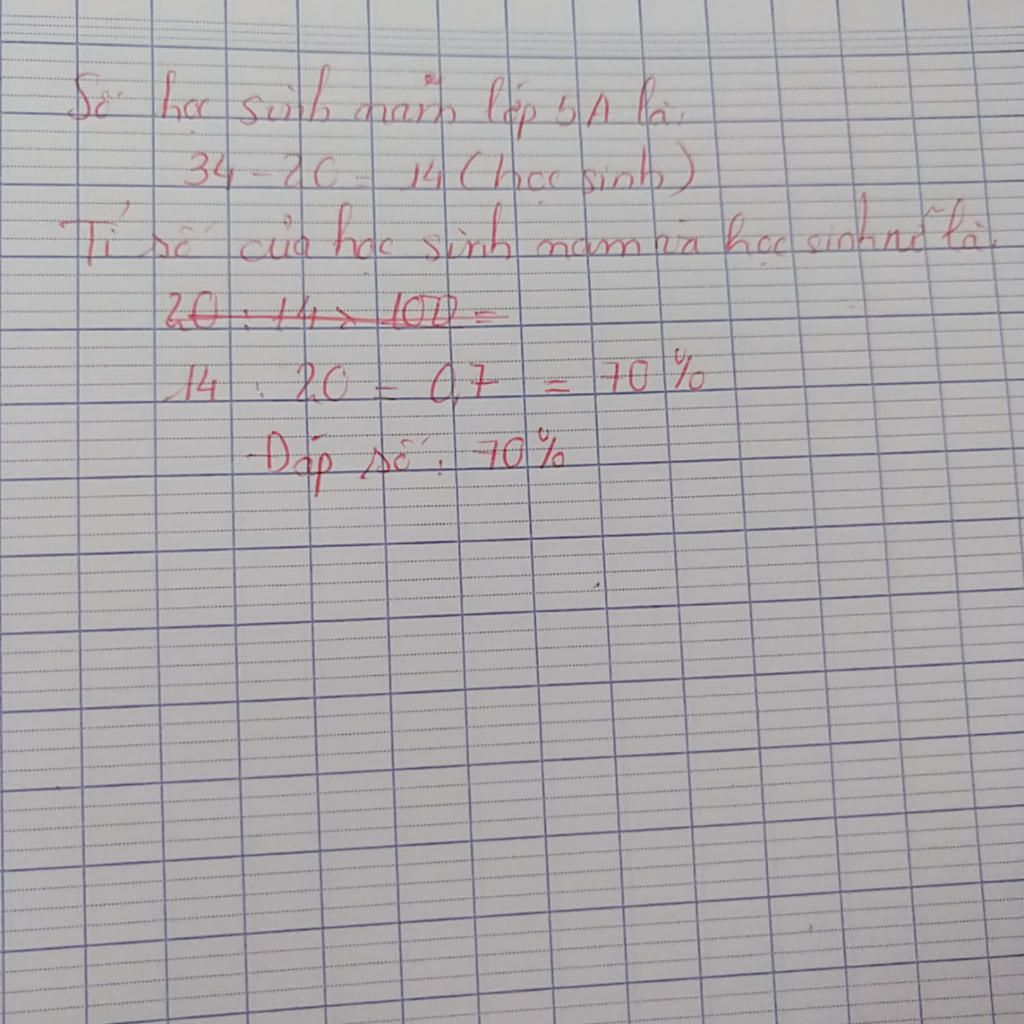 Số học sinh nam lớp 5A là:
34 - 20 = 14 (học sinh)
Tỉ số của học sinh nam và học sinh nữ là:
20 : 14 × 100 =
14 : 20 = 0,7 = 70%
Đáp số: 70%